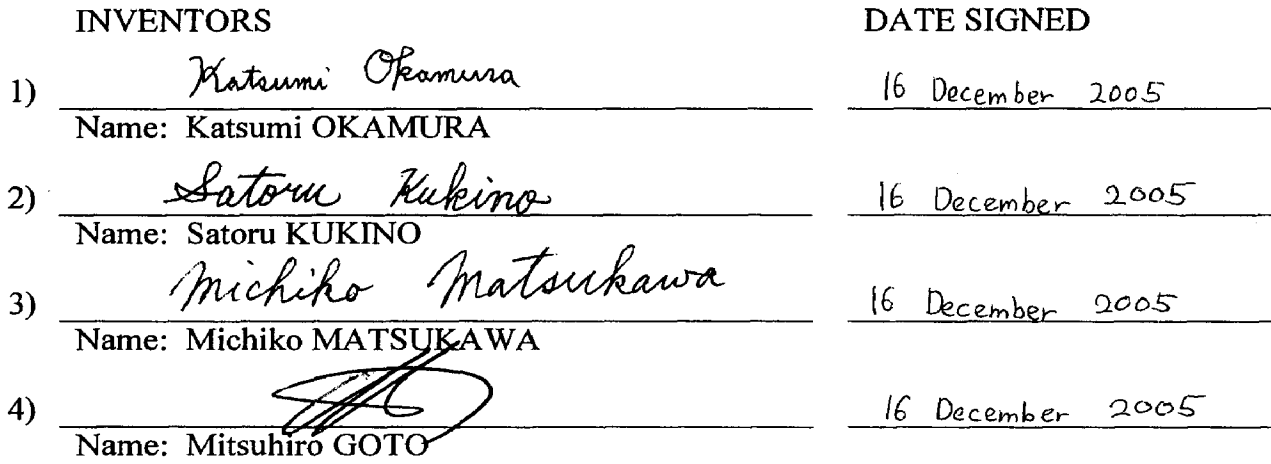 INVENTORS DATE SIGNED
1) Katsumi Okamura 16 December 2005
Name: Katsumi OKAMURA
2) Satoru Kukino 16 December 2005
Name: Satoru KUKINO
3) Michiko Matsukawa 16 December 2005
Name: Michiko MATSUKAWA
4) 16 December 2005
Name: Mitsuhiro GOTO